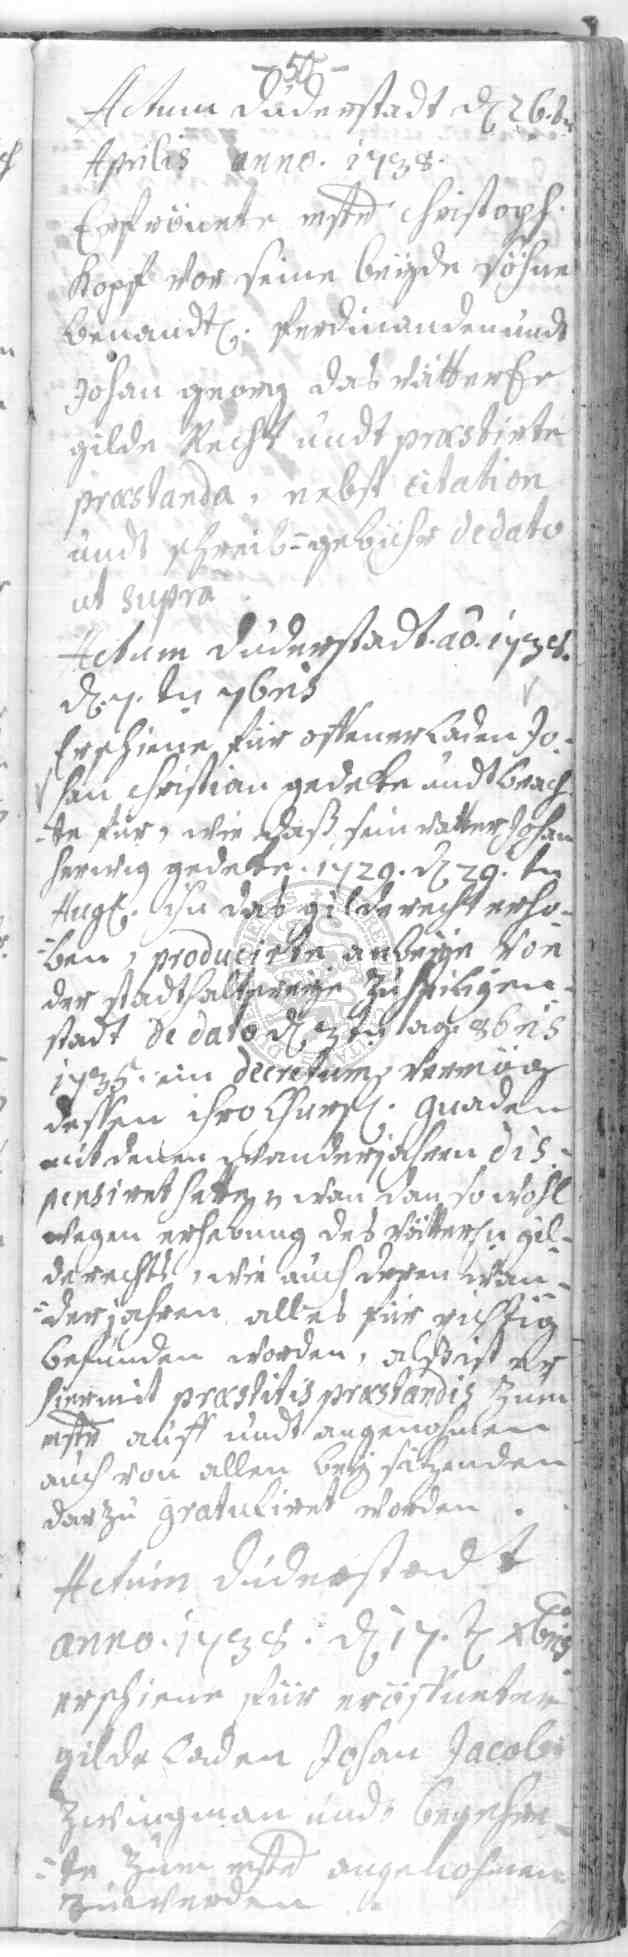 - 50 -
Actum Duderstadt d 26. tn
Aprilis anno. 1738.
mstr Christoph.
Kopf vor seine beyde söhne
benandtl. Ferdinanden undt
Johan georg das vätterl
gilde Recht undt praestirte
praestanda, nebst citation
undt schreib=gebühr de dato
ut supra
Actum Duderstadt. ao. 1738.
d. 7. tn 7bris
Erschiene für offener Laden Jo-
han Christian gedeke undt brach-
-te für, wie daß sein vatter Johan
herwig gedeke. 1729. d 29. tn
Augl. ihn das gilderecht erho-
-ben, producirte anbeye von
der stadthaltereye zu heiligen-
stadt de dato d 8bris
1735. ein decretum, vermög
dessen ihro Churfl. gnaden
mit denen wanderjahren dis-
pensiret hette, wan dan so wohl
wegen erhebung des vätterln gil-
derechts, wie auch deren wan-
-derjahren alles für richtig
befunden worden, alß ist Er
hiermit praestitis praestandis zum
mstr auff undt angenohmen
auch von allen bey sitzenden
darzu gratuliret worden.
Actum Duderstadt
anno. 1738. d 17. t xbris
erschiene für eröffneter
gilde Laden Johan Jacob
Zwingman undt begehre-
-te zum mstr angenohmen
zuwerden